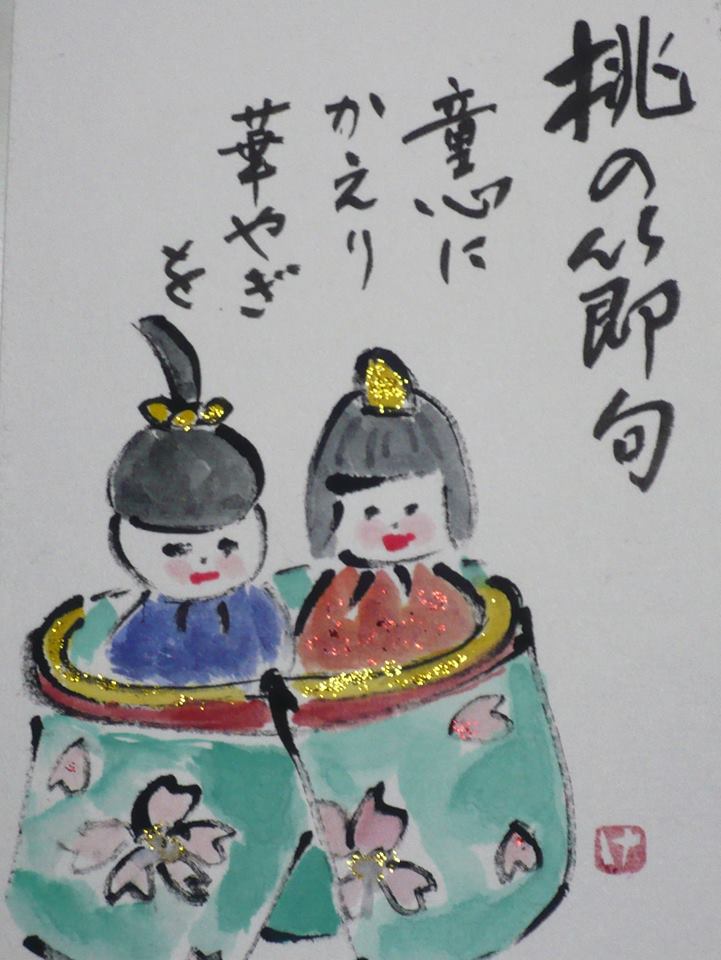 桃の節句
童心に
かえり
華やぎ
を
け